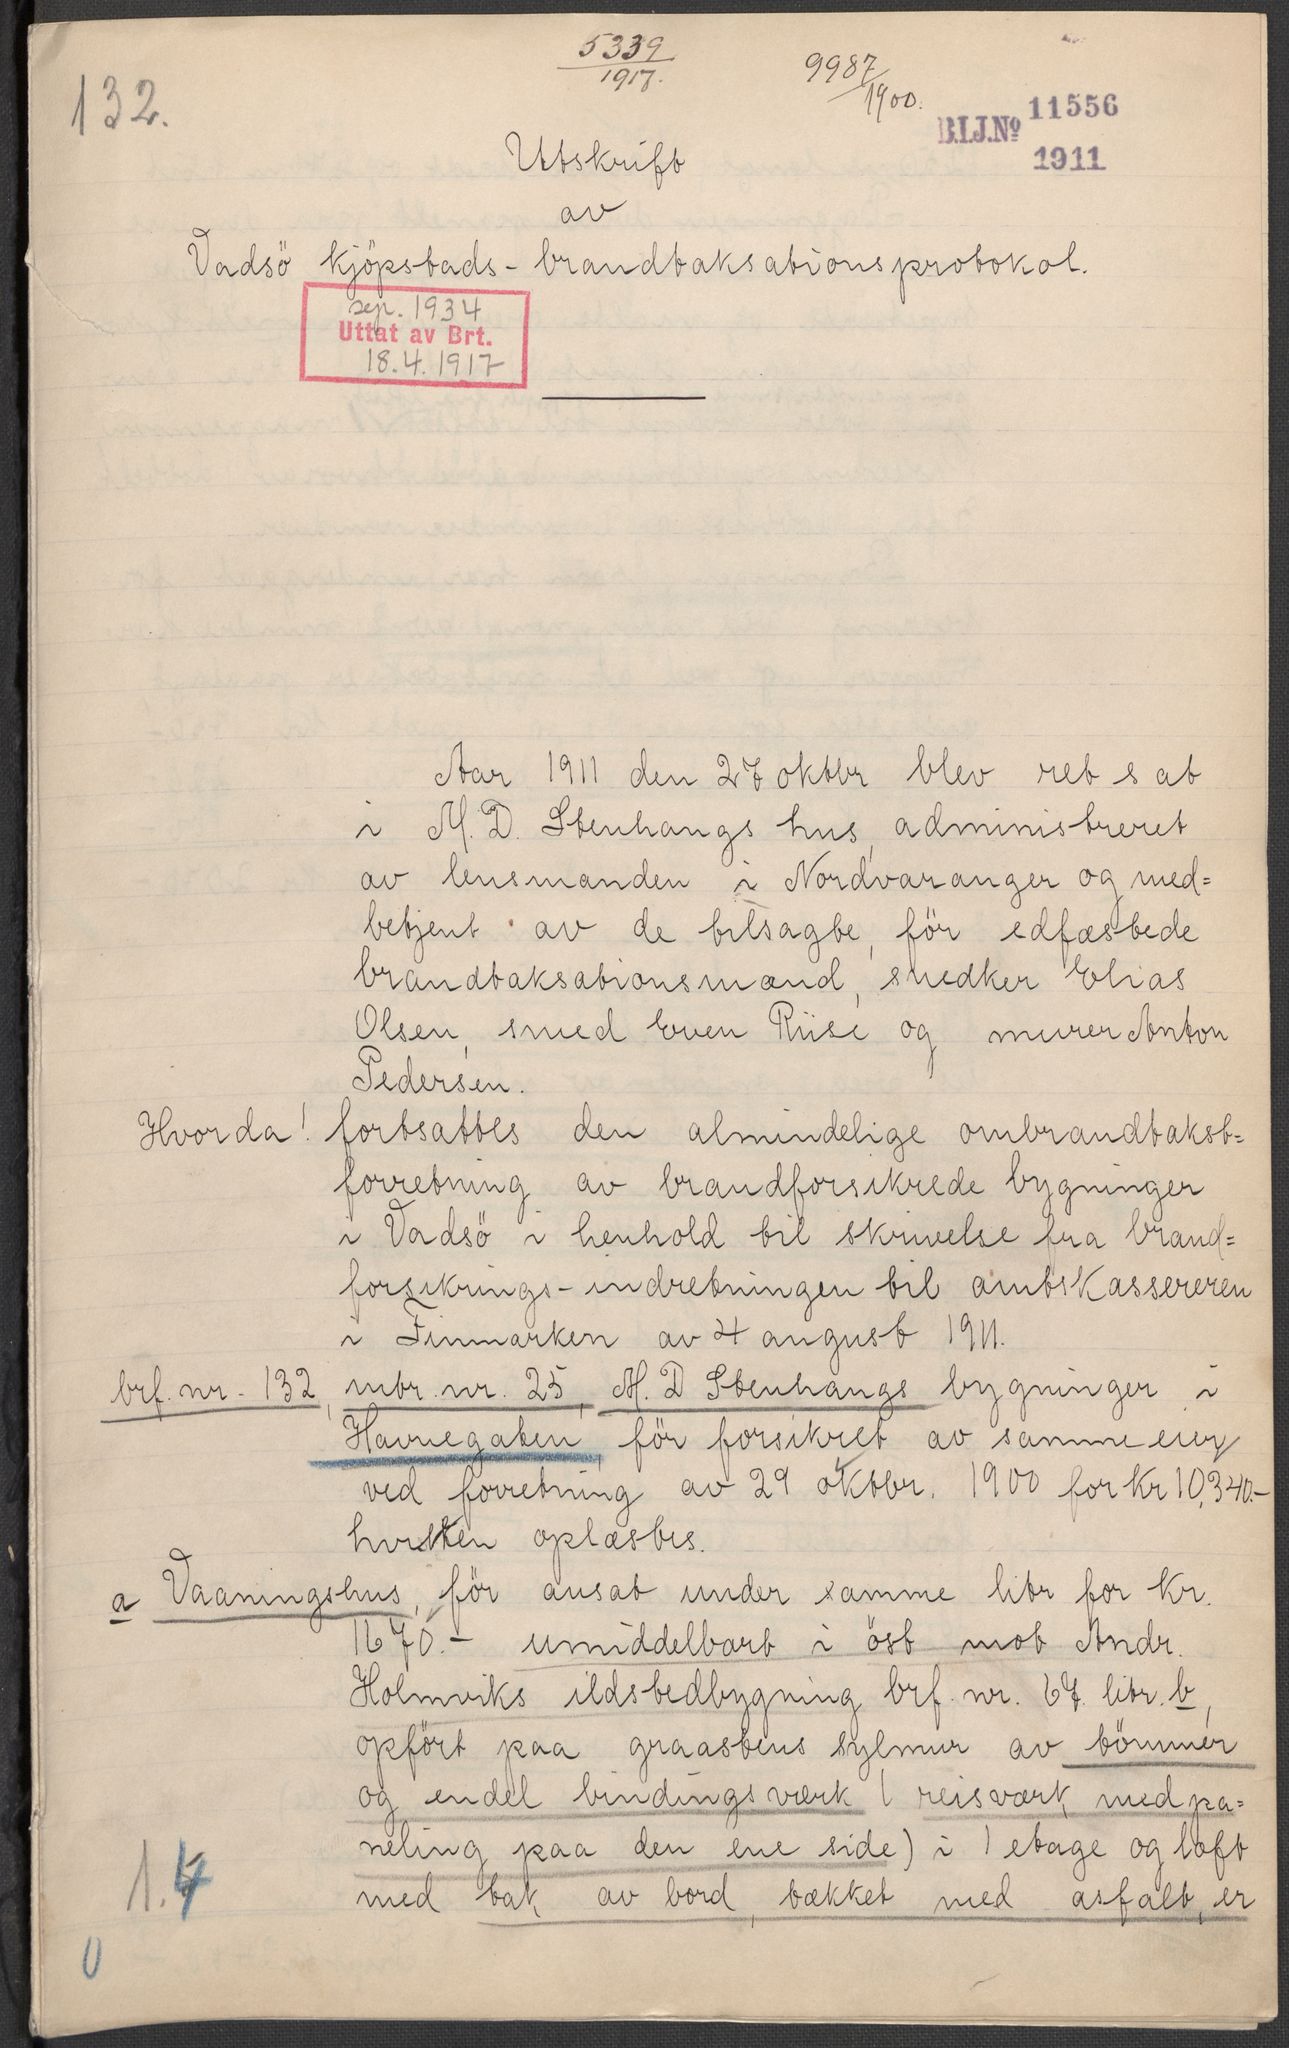 132.
5339
1917.
9987
1900.
B.I.J.Nº 11556
1911
Utskrift
av
Vadsö kjöpstads-brandtaksationsprotokol.
sep. 1934
Uttat av Brt.
18.4.1917
Aar 1911 den 27 oktbr blev ret sat
i M. D. Stenhaugs hus, administreret
av lensmanden i Nordvaranger og med=
betjent av de tilsagte, för edfæstede
brandtaksationsmænd, snedker Elias
Olsen, smed Even Riise og murer Anton
Pedersen.
Hvorda! fortsattes den almindelige ombrandtakst=
forretning av brandforsikrede bygninger
i Vadsö i henhold til skrivelse fra brand=
forsikrings-indretningen til amtskassereren
i Finmarken av 4 august 1911.
brf. nr. 132, mtr. nr. 25, M. D Stenhaugs bygninger i
Havnegaten, för forsikret av samme eier
ved forretning av 29 oktbr. 1900 for Kr 10,340.-
hvilken oplæstes.
a Vaaningshus, för ansat under samme litr for Kr.
1670.- umiddelbart i öst mot Andr.
Holmviks ildstedbygning brf. nr. 67. litr. b,
opfört paa graastens sylmur av tömmer
og endel bindingsværk (reisværk, med pa=
neling paa den ene side) i 1 etage og loft
med tak av bord, tækket med asfalt, er
1.4
0